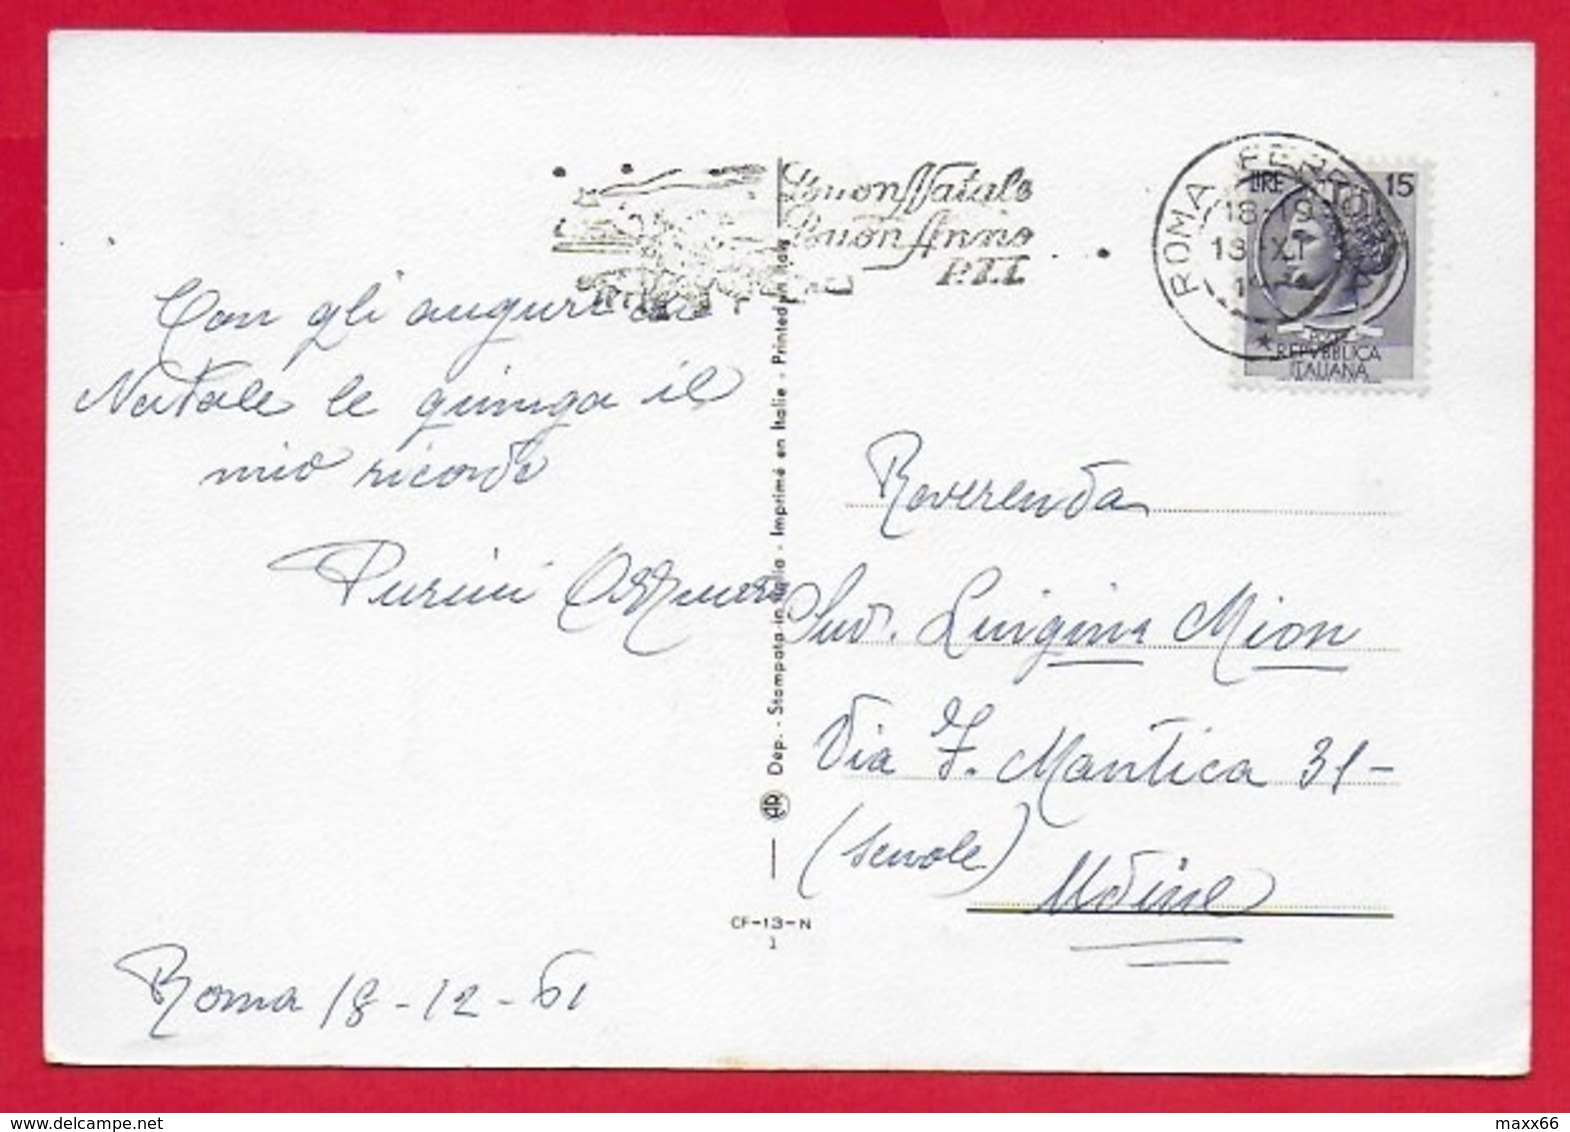 Buon Natale
Buon Anno
P.T.T.
ROMA FERROVIA
18-19
LIRE 15
POSTE
REPVBBLICA
ITALIANA
Con gli auguri di
Natale le giunga il
mio ricordo
Purini
Roma 18-12-61
Dep. - Stampato in Italia - Imprimé en Italie - Printed in Italy
AR
CF-13-N
1
Reverenda
Suor. Luigina Mion
Via F. Mantica 31-
(scuole)
Udine
maxx66